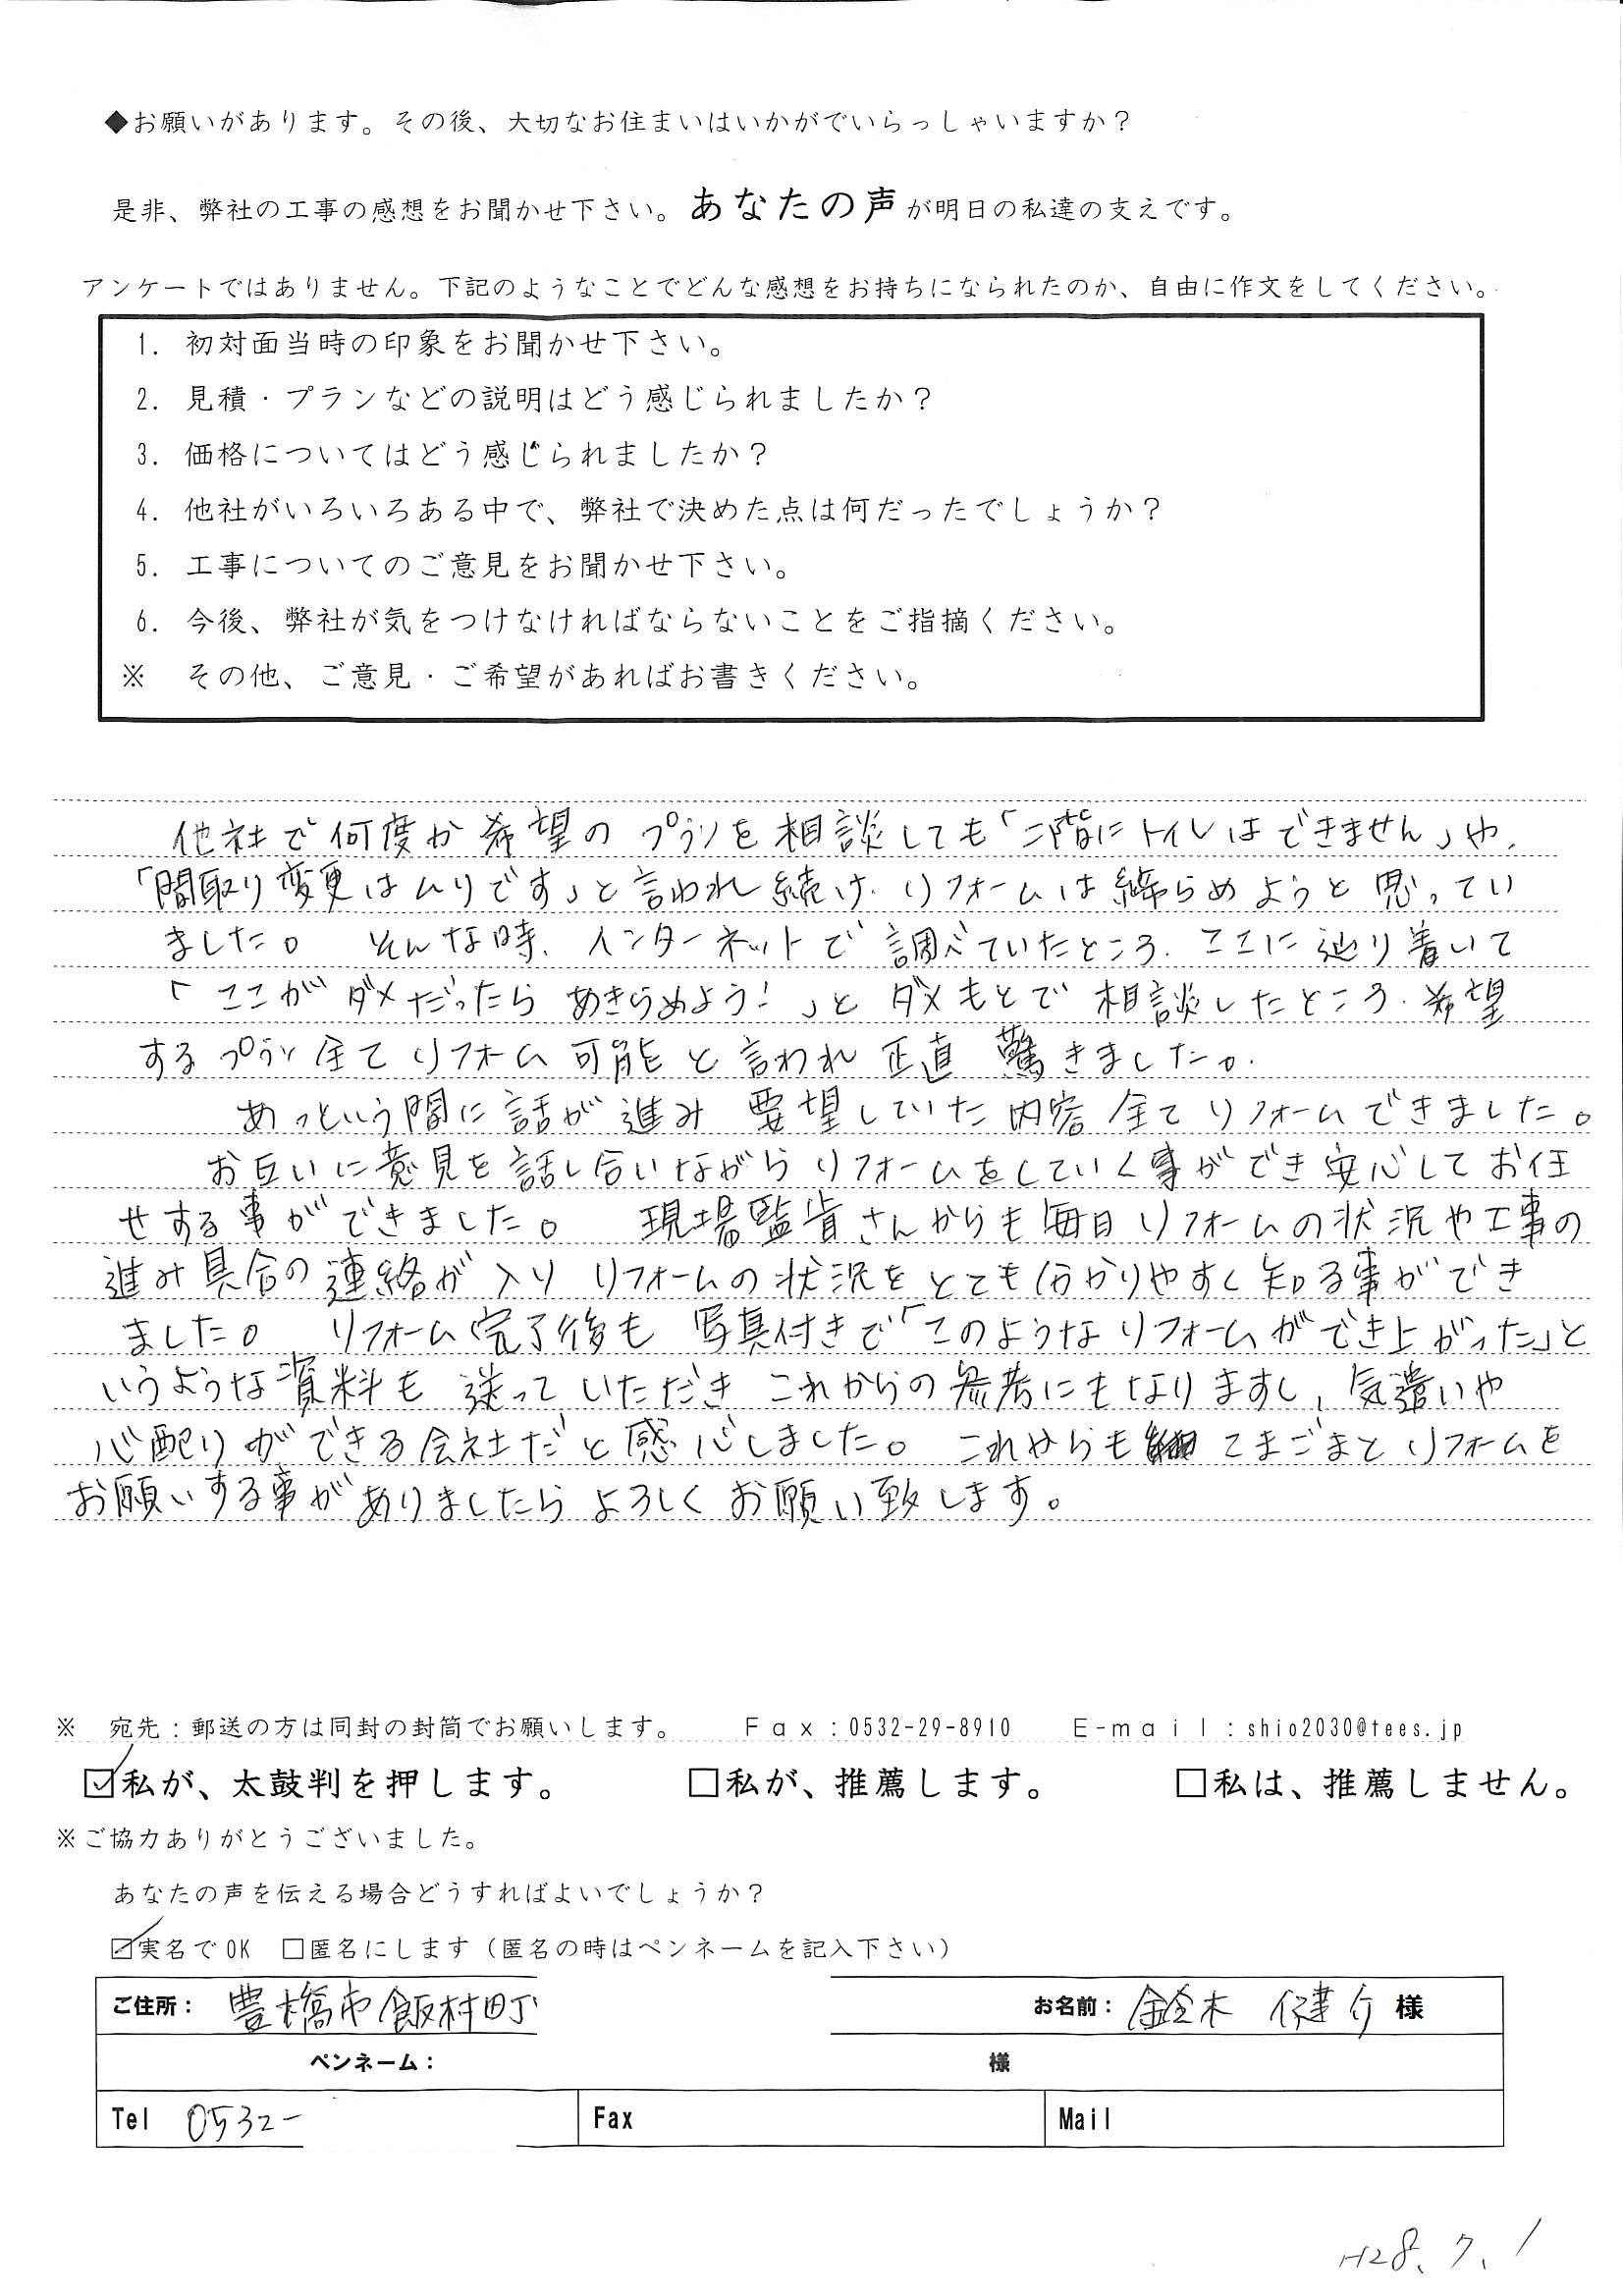 ◆お願いがあります。その後、大切なお住まいはいかがでいらっしゃいますか？
是非、弊社の工事の感想をお聞かせ下さい。あなたの声が明日の私達の支えです。
アンケートではありません。下記のようなことでどんな感想をお持ちになられたのか、自由に作文をしてください。
1. 初対面当時の印象をお聞かせ下さい。
2. 見積・プランなどの説明はどう感じられましたか？
3. 価格についてはどう感じられましたか？
4. 他社がいろいろある中で、弊社で決めた点は何だったでしょうか？
5. 工事についてのご意見をお聞かせ下さい。
6. 今後、弊社が気をつけなければならないことをご指摘ください。
※ その他、ご意見・ご希望があればお書きください。
他社で何度か希望のプランを相談しても「二階にトイレはできません」や、
「間取り変更はムリです」と言われ続け、リフォームは締らめようと思ってい
ました。 そんな時、インターネットで調べていたところ、ここに辿り着いて
「ここがダメだったらあきらめよう！」とダメもとで相談したところ、希望
するプラン全てリフォーム可能と言われ正直驚きました。
あっという間に話が進み 要望していた内容全てリフォームできました。
お互いに意見を話し合いながらリフォームをしていく事ができ安心してお任
せする事ができました。 現場監督さんからも毎日リフォームの状況や工事の
進み具合の連絡が入り リフォームの状況をとても分かりやすく知る事ができ
ました。 リフォーム完了後も 写真付きで「このようなリフォームができ上がった」と
いうような資料も 送っていただき これからの参考にもなりますし、気遣いや
心配りができる会社だと感心しました。 これからもこまごまとリフォームを
お願いする事がありましたらよろしくお願い致します。
※ 宛先：郵送の方は同封の封筒でお願いします。 Fax：0532-29-8910 E-mail：shio2030@tees.jp
☑私が、太鼓判を押します。 □私が、推薦します。 □私は、推薦しません。
※ご協力ありがとうございました。
あなたの声を伝える場合どうすればよいでしょうか？
☑実名でOK □匿名にします（匿名の時はペンネームを記入下さい）
ご住所： 豊橋市飯村町 お名前： 鈴木 健介 様
ペンネーム： 様
Tel 0532- Fax Mail
H28.7.1